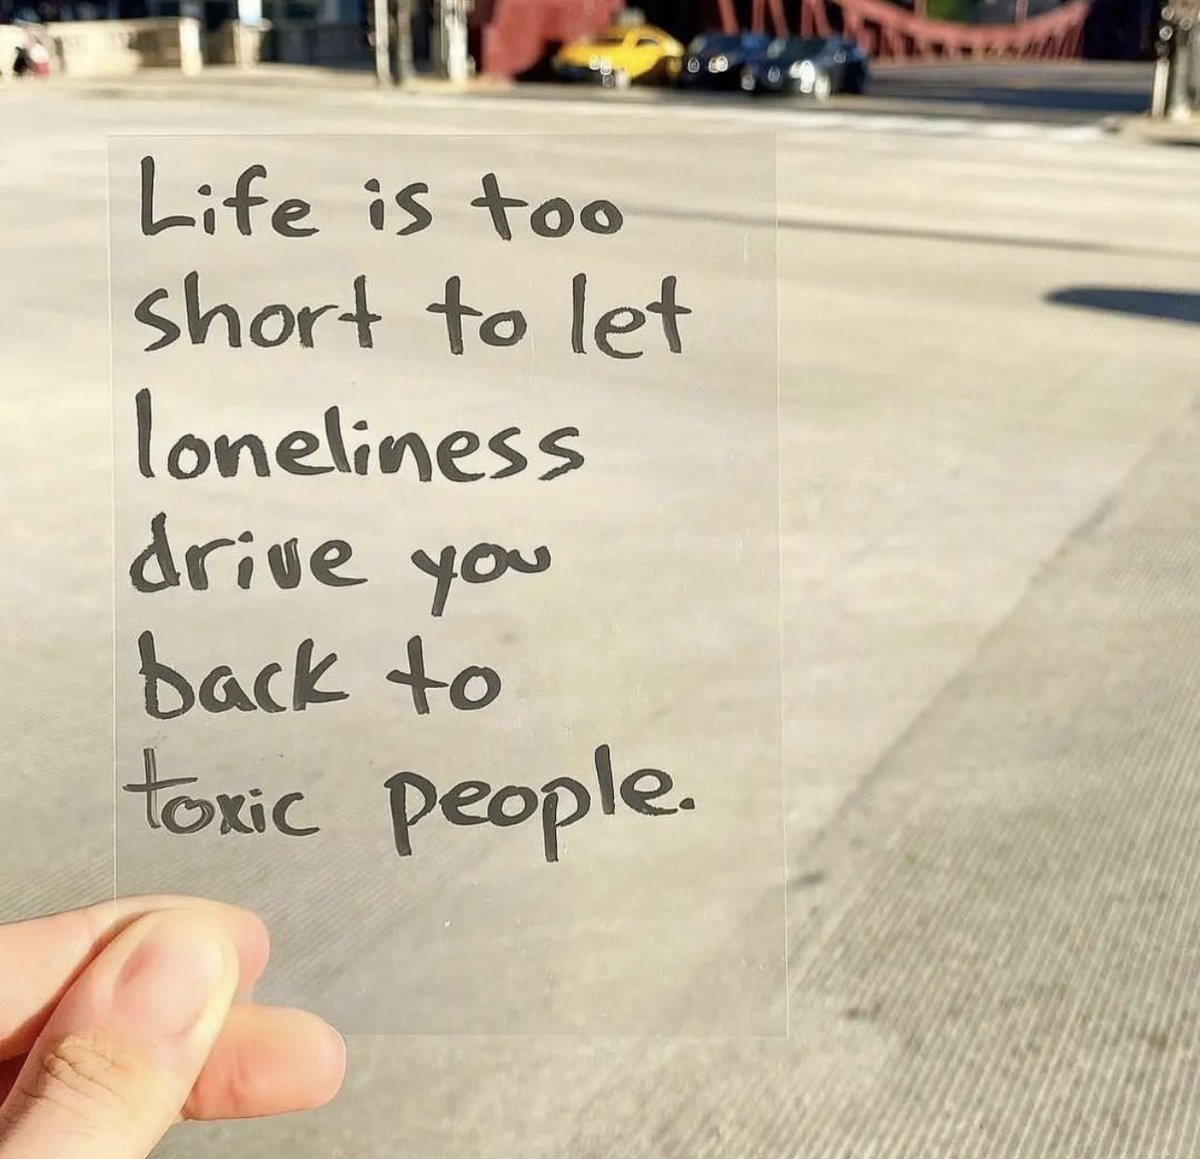 Life is too
short to let
loneliness
drive you
back to
toxic people.